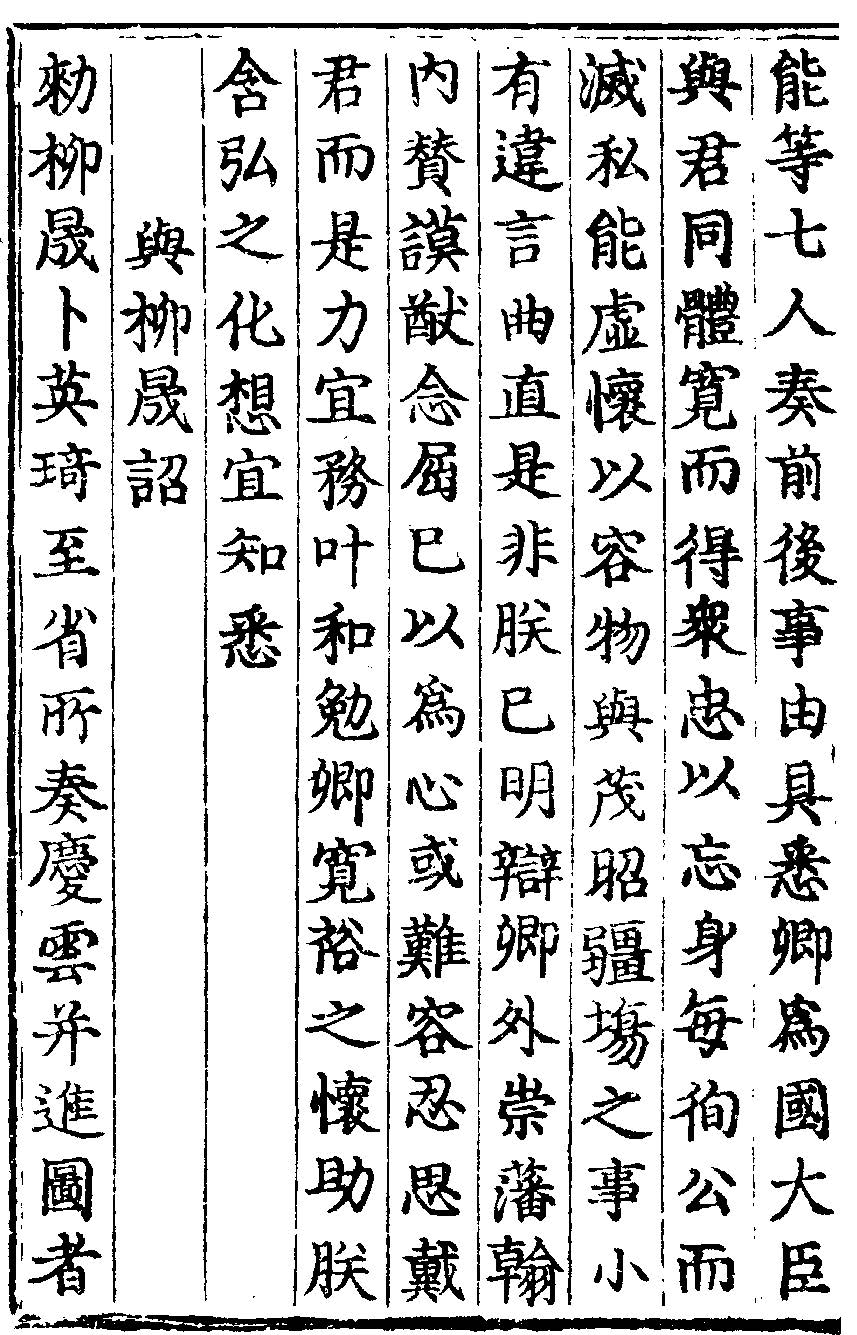 能等七人奏前後事由具悉卿爲國大臣
與君同體寬而得衆忠以忘身每徇公而
滅私能虛懷以容物與茂昭疆場之事小
有違言曲直是非朕已明辯卿外崇藩翰
内賛謨猷念屈已以爲心或難容忍思戴
君而是力宜務叶和勉卿寬裕之懷助朕
含弘之化想宜知悉
與柳晟詔
勑柳晟卜英琦至省所奏慶雲并進圖者